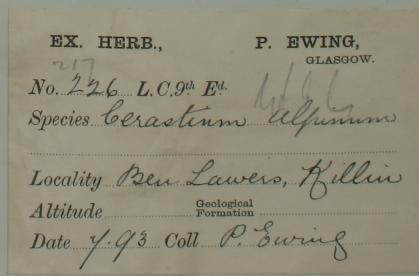 EX. HERB., P. EWING,
GLASGOW.
217
No. 226 L.C. 9th Ed.
Species Cerastium alpinum
Locality Ben Lawers, Killin
Altitude Geological Formation
Date 7.93 Coll P. Ewing